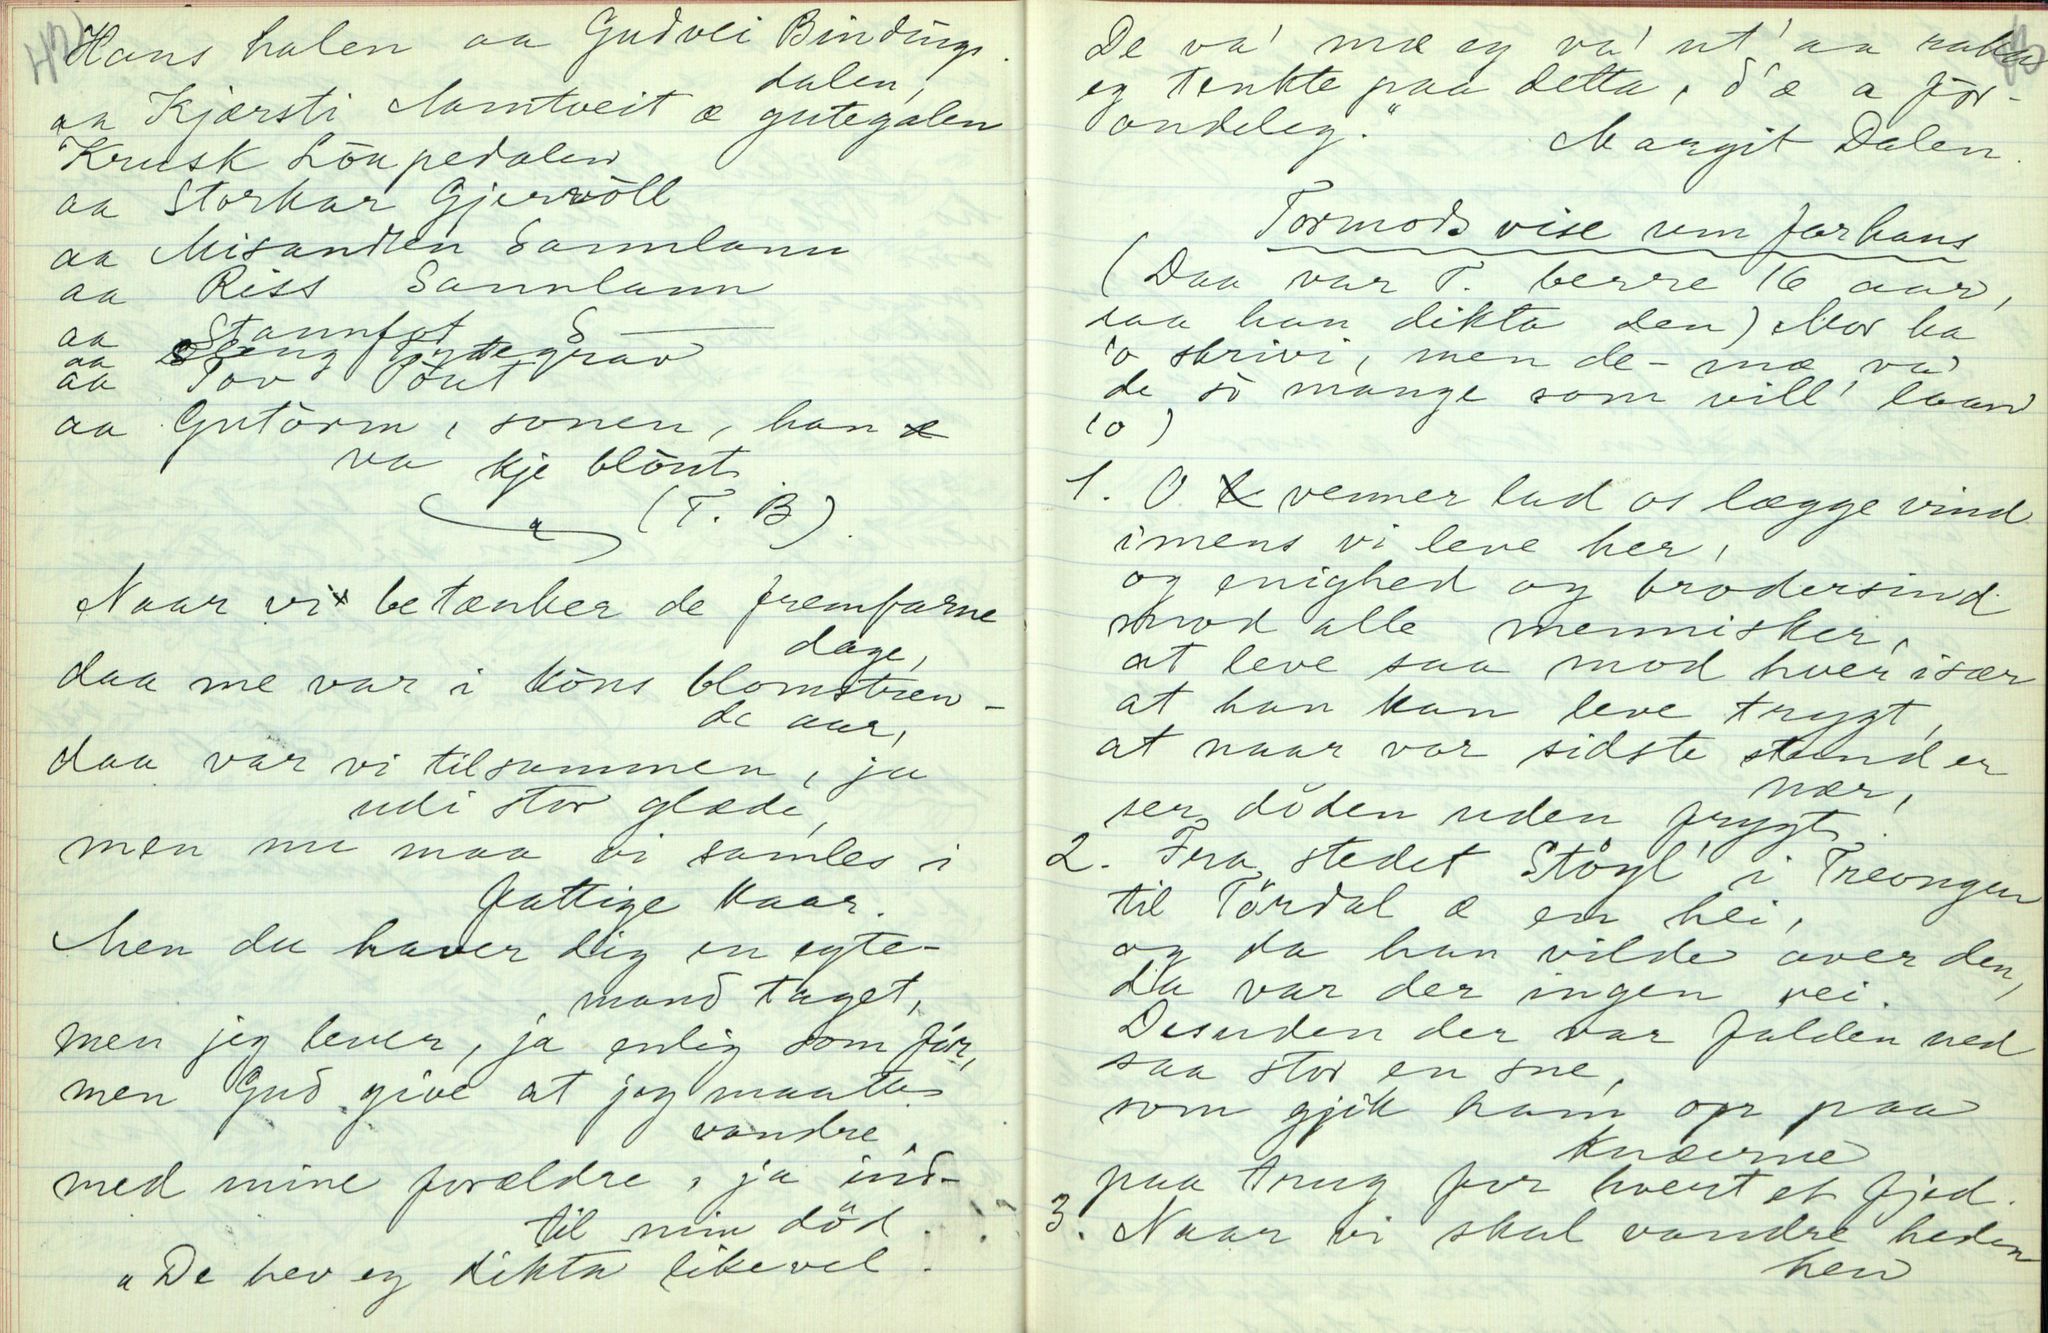 Hans halen aa Gudvei Bindings-
dalen,
aa Kjærsti Namtveit æ gutegalen
Krusk Löupedalen
aa Storkar Gjervöll
aa Misanden Sannlann
aa Riss Sannlann
aa Stannfot S
aa
aa Tov Töut
aa Gutörm, sonen, han
va kje blöut
(T. B.)
Naar vi betænker de fremfarne
dage,
daa me var i köns blomstren-
de aar,
daa var vi tilsammen, ja
udi stor glæde,
men nu maa vi samles i
fattige kaar.
Men du haver dig en egte-
mand taget,
men jeg lever, ja enlig som för,
men Gud give at jeg maatte
vandre,
med mine forældre, ja ind-
til min död.
"De hev eg dikta likevel.
43
De va' mæ eg va' ut' aa raka
eg tenkte paa detta, d'æ a för-
andeleg."
Margit Dalen.
Tormods vise um far hans
(Daa var T. berre 16 aar,
saa han dikta den) Mor ha
'o skrivi, men de-mæ va'
de so mange som vill' laan
'o)
1. O venner lad os lægge vind
imens vi leve her,
og enighed og brodersind
mod alle mennisker,
at leve saa mod hver især
at han kan leve trygt,
at naar vor sidste stund er
nær,
ser döden uden frygt.
2. Fra stedet Stöyl i Treongen
til Tördal æ en hei,
og da han vilde over den,
da var der ingen vei.
Desuden der var falden ned
saa stor en sne,
som gjik ham op paa
knæerne
paa trug for hvert et fjed.
3. Naar vi skal vandre heden
hen